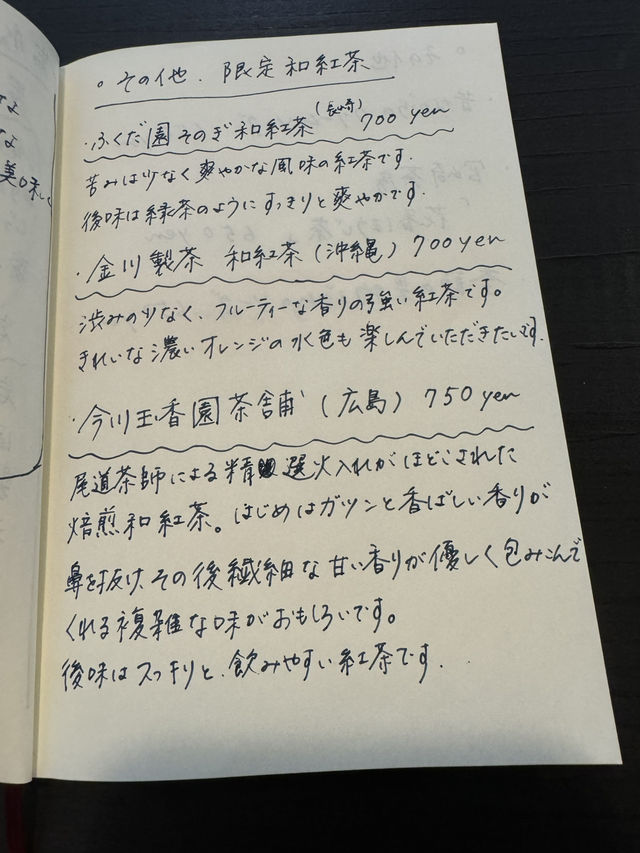 。その他、限定和紅茶
・ふくだ園 そのぎ和紅茶 (長崎) 700 yen
苦みは少なく爽やかな風味の紅茶です.
後味は緑茶のようにすっきりと爽やかです.
・金川製茶 和紅茶 (沖縄) 700yen
渋みの少なく、フルーティーな香りの強い紅茶です。
きれいな濃いオレンジの水色も楽しんでいただきたいです.
・今川玉香園茶舗 (広島) 750 yen
尾道茶師による精選火入れがほどこされた
焙煎和紅茶。はじめはガツンと香ばしい香りが
鼻を抜け、その後繊細な甘い香りが優しく包みこんで
くれる複雑な味がおもしろいです。
後味はスッキリと、飲みやすい紅茶です.
美味しく